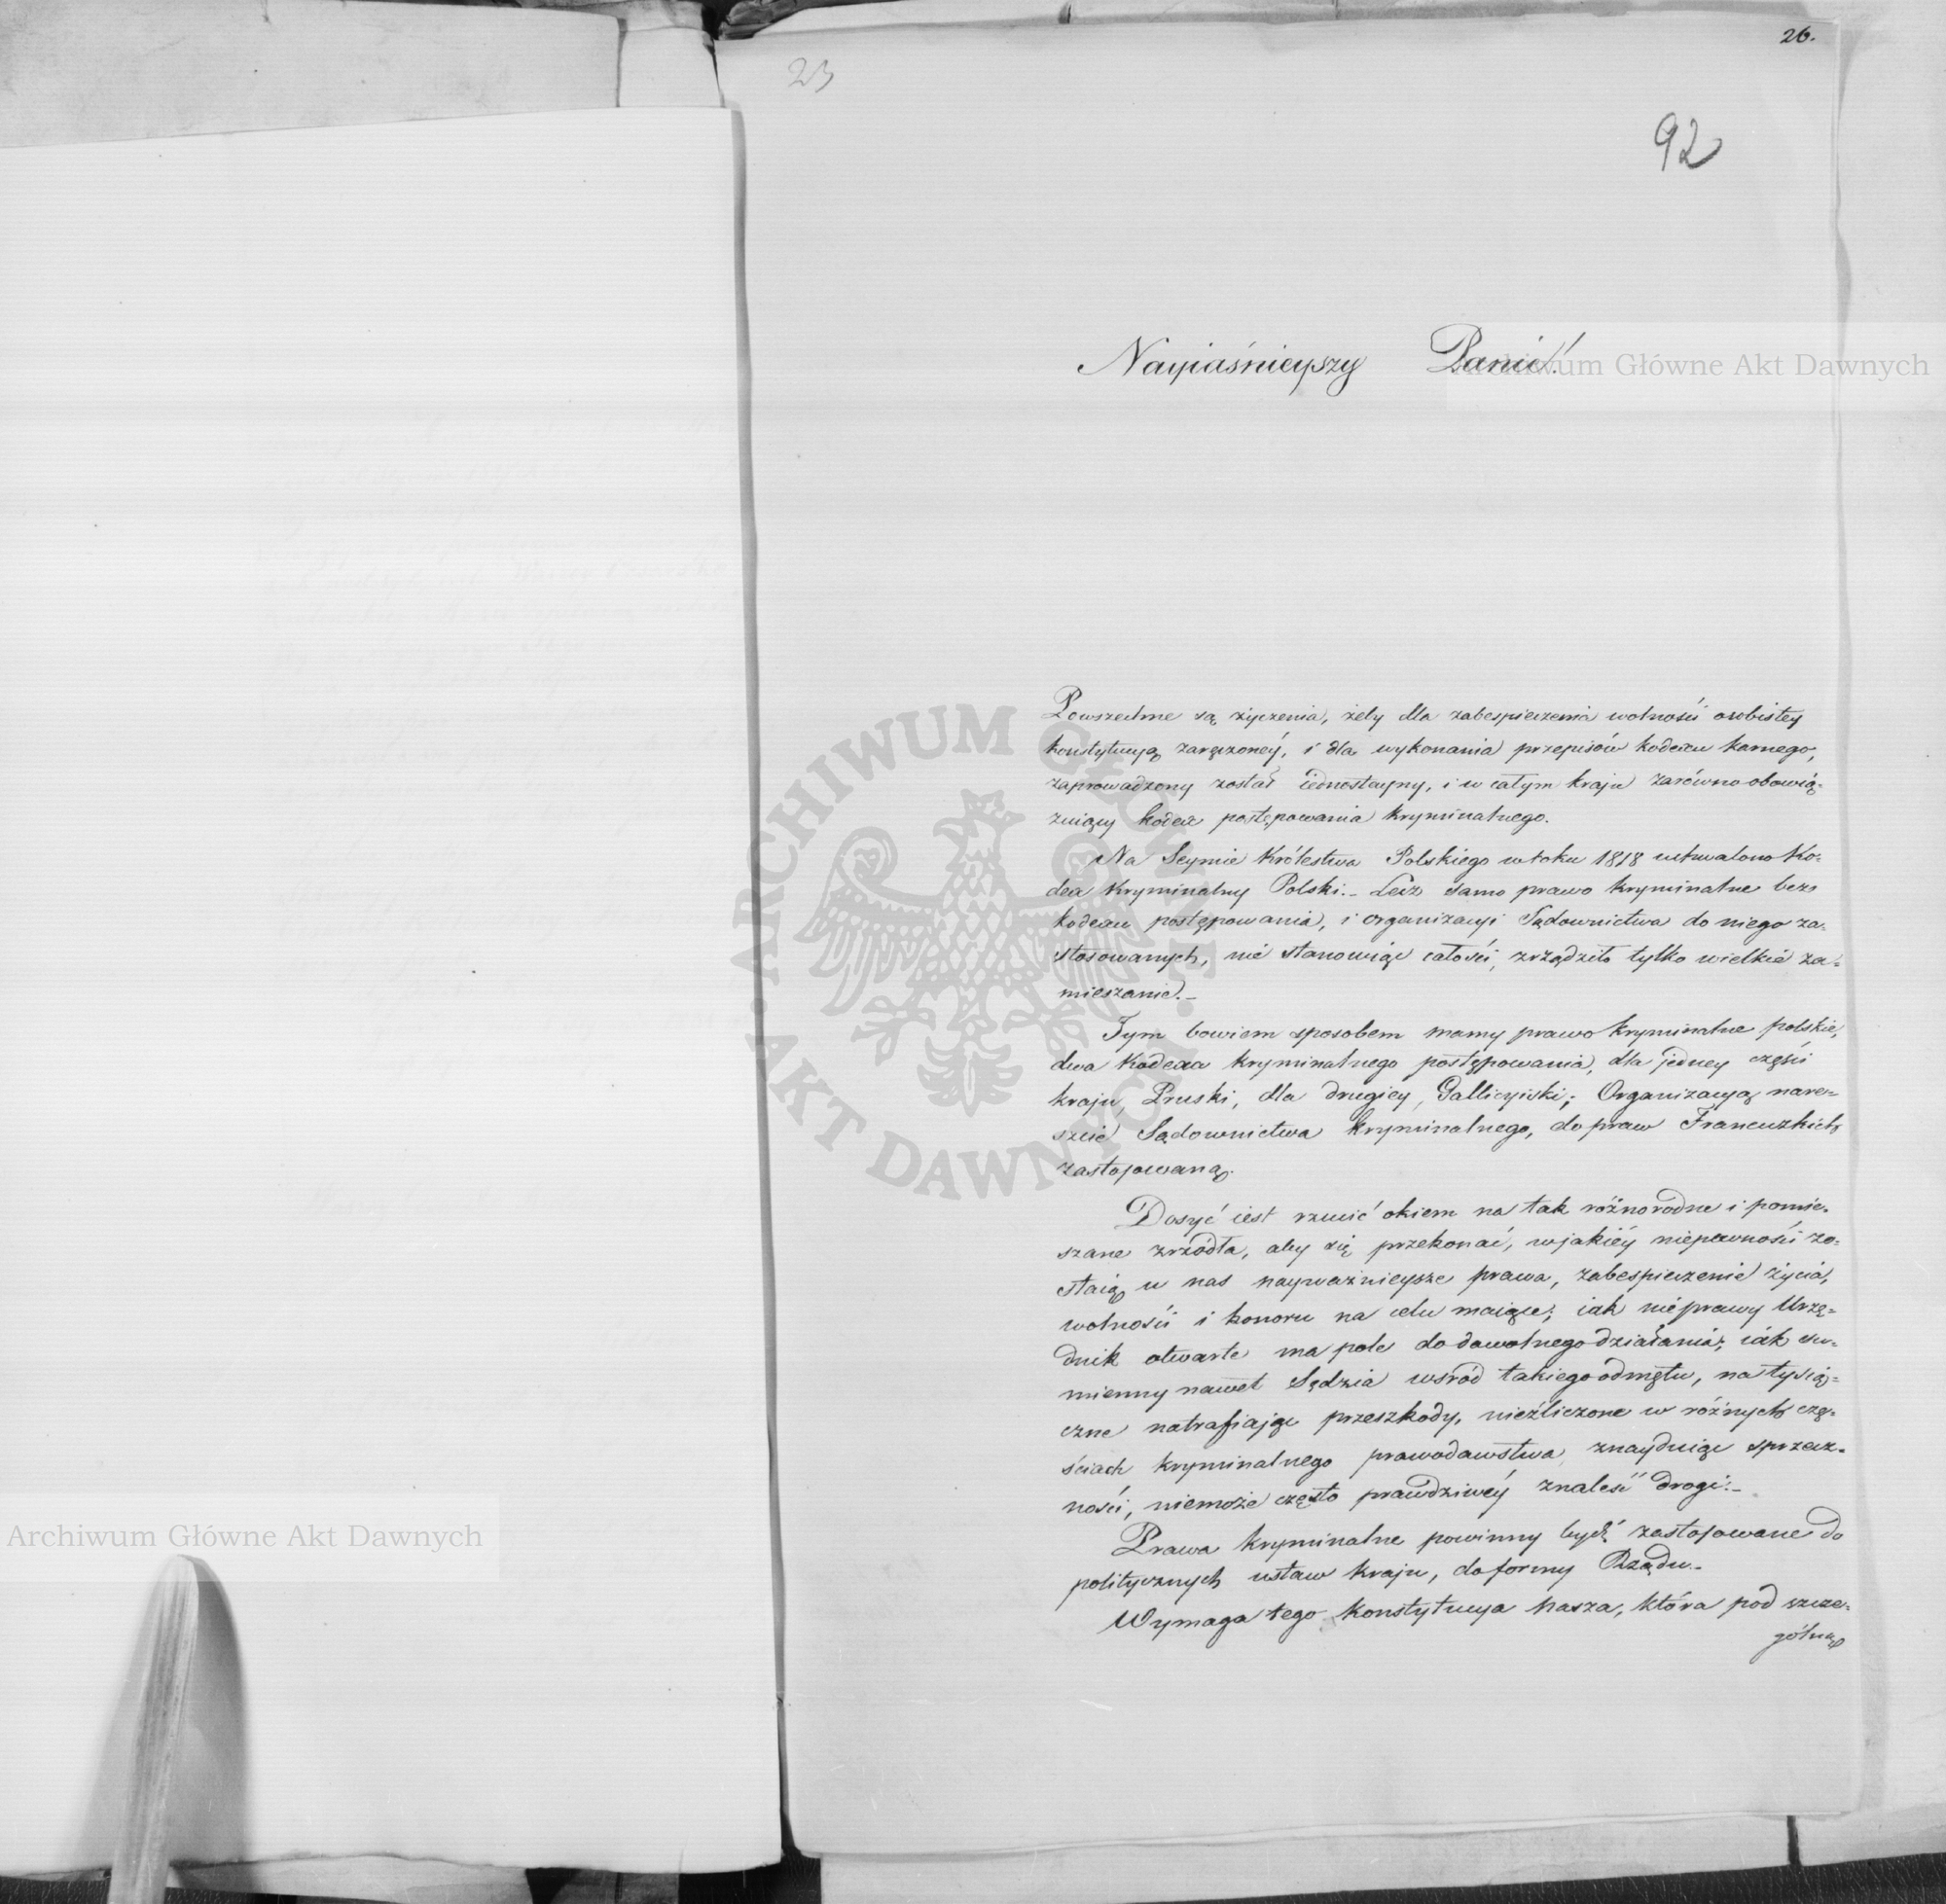 26.
23
92
Nayiaśnieyszy Panie!
Powszechne są życzenia, żeby dla zabespieczenia wolności osobistey
konstytucyą zaręczoney, i dla wykonania przepisów kodexu karnego,
zaprowadzony został iednostayny, i w całym kraju zarówno obowią-
zuiący kodex postępowania kryminalnego.
Na Seymie Królestwa Polskiego w roku 1818 uchwalono Ko-
dex Kryminalny Polski. - Lecz samo prawo kryminalne bez
kodexu postępowania, i organizacyi Sądownictwa do niego za-
stosowanych, nie stanowiąc całości, zrządziło tylko wielkie za-
mieszanie. -
Tym bowiem sposobem mamy prawo kryminalne polskie,
dwa Kodexa kryminalnego postępowania, dla jedney części
kraju Pruski, dla drugiey, Gallicyiski; Organizacyą nare-
szcie Sądownictwa kryminalnego, do praw Francuzkich
zastosowaną.
Dosyć iest rzucić okiem na tak różnorodne i pomie-
szane zrzódła, aby się przekonać, w jakiéy niepewności zo-
staią u nas nayważnieysze prawa, zabespieczenie życia,
wolności i honoru na celu maiące; iak nieprawy Urzę-
dnik otwarte ma pole do dowolnego działania; iak su-
mienny nawet Sędzia wśród takiego odmętu, na tysią-
czne natrafiając przeszkody, niezliczone w różnych czę-
ściach kryminalnego prawodawstwa, znayduiąc sprzecz-
ności, niemoże często prawdziwéy znaleść drogi. -
Prawa kryminalne powinny bydź zastosowane do
politycznych ustaw kraju, do formy Rządu. -
Wymaga tego Konstytucya nasza, która pod szcze-
gólną
Archiwum Główne Akt Dawnych
Archiwum Główne Akt Dawnych
ARCHIWUM GŁÓWNE · AKT DAWNYCH ·